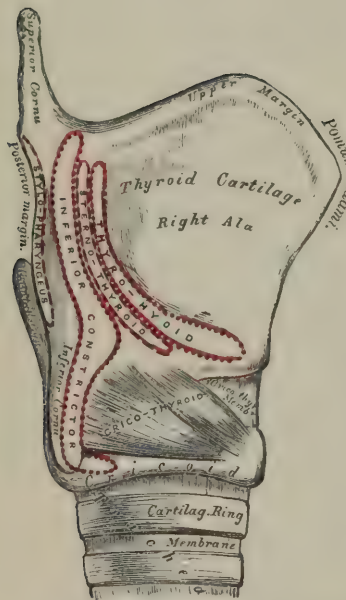 Superior Cornu
Upper Margin
Pomum Adami.
Posterior margin.
Thyroid Cartilage
Right Ala
STYLO-PHARYNGEUS
INFERIOR CONSTRICTOR
STERNO-THYROID
THYRO-HYOID
Inferior Cornu
CRICO-THYROID
Crico thyr.
Memb.
Cricoid
Cartilag. Ring
Membrane